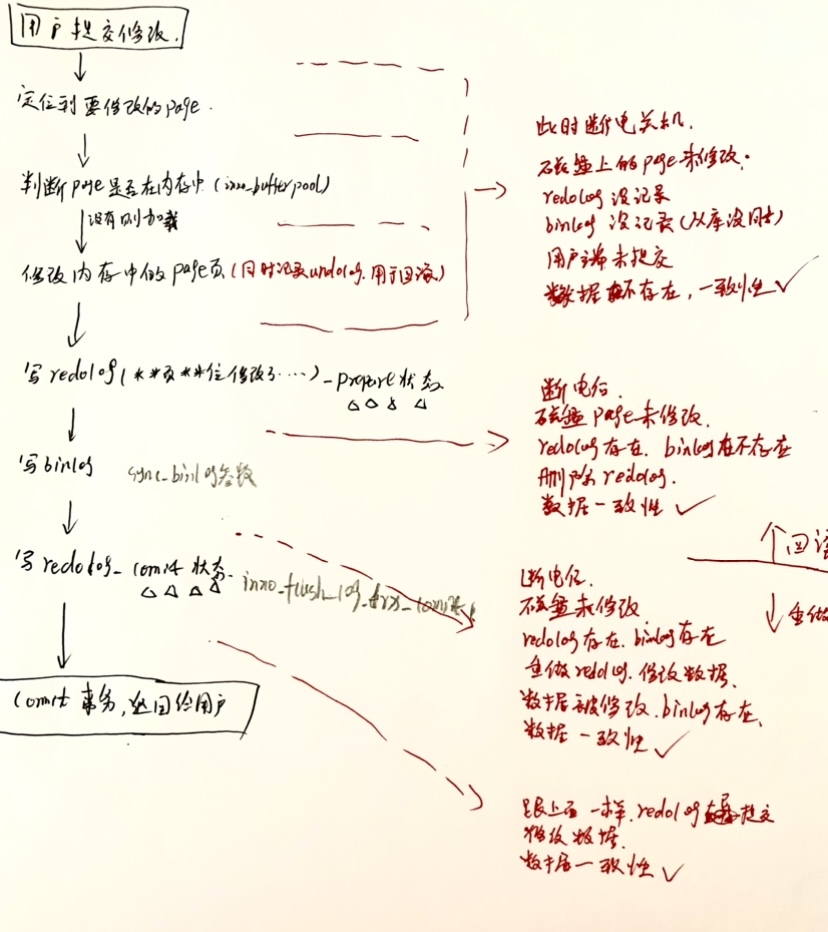 用户提交修改.
定位到要修改的page.
判断page是否在内存中(inno_bufferpool)
没有则加载
修改内存中的page页(同时记录undolog,用于回滚)
写redolog(**页**位修改了....)-prepare状态
写binlog
sync_binlog参数
写redolog-comit状态.
inno_flush_log_trx_comit
comit事务,返回给用户
此时断电关机.
磁盘上的page未修改.
redolog没记录
binlog没记录(从库没同步)
用户端未提交
数据不存在,一致性✓
断电后.
磁盘page未修改.
redolog存在.binlog不存在
删除redolog.
数据一致性✓
个回滚
↓重做
断电后.
磁盘未修改
redolog存在.binlog存在
重做redolog.修改数据.
数据被修改.binlog存在,
数据一致性✓
跟上面一样,redolog提交
修改数据.
数据一致性✓